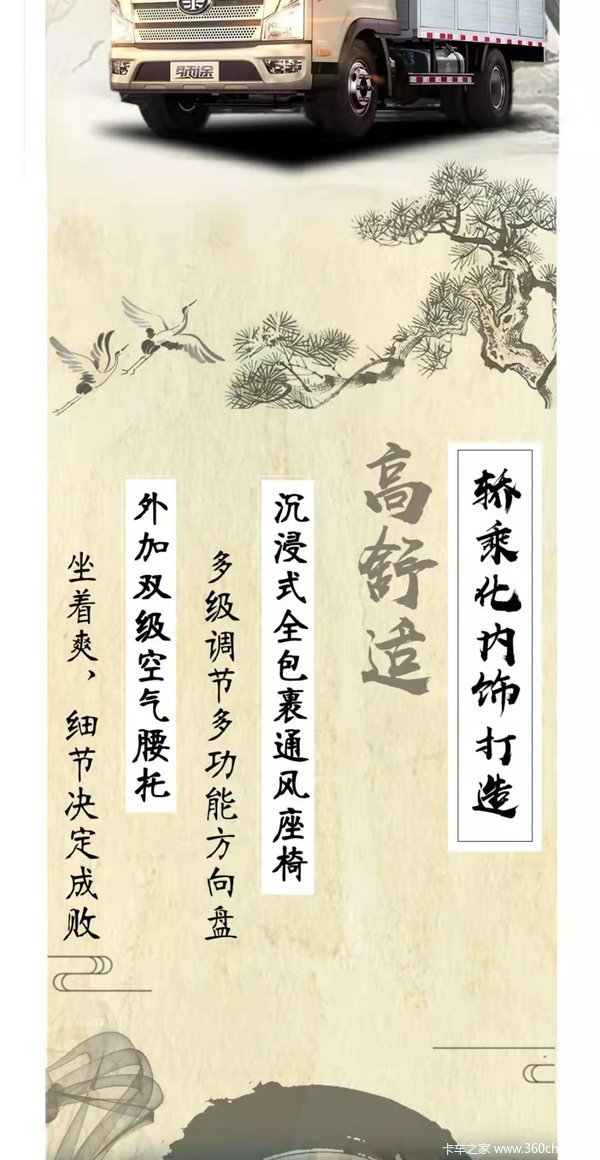 领途
轿乘化内饰打造
高舒适
沉浸式全包裹通风座椅
多级调节多功能方向盘
外加双级空气腰托
坐着爽，细节决定成败
卡车之家 www.360ch